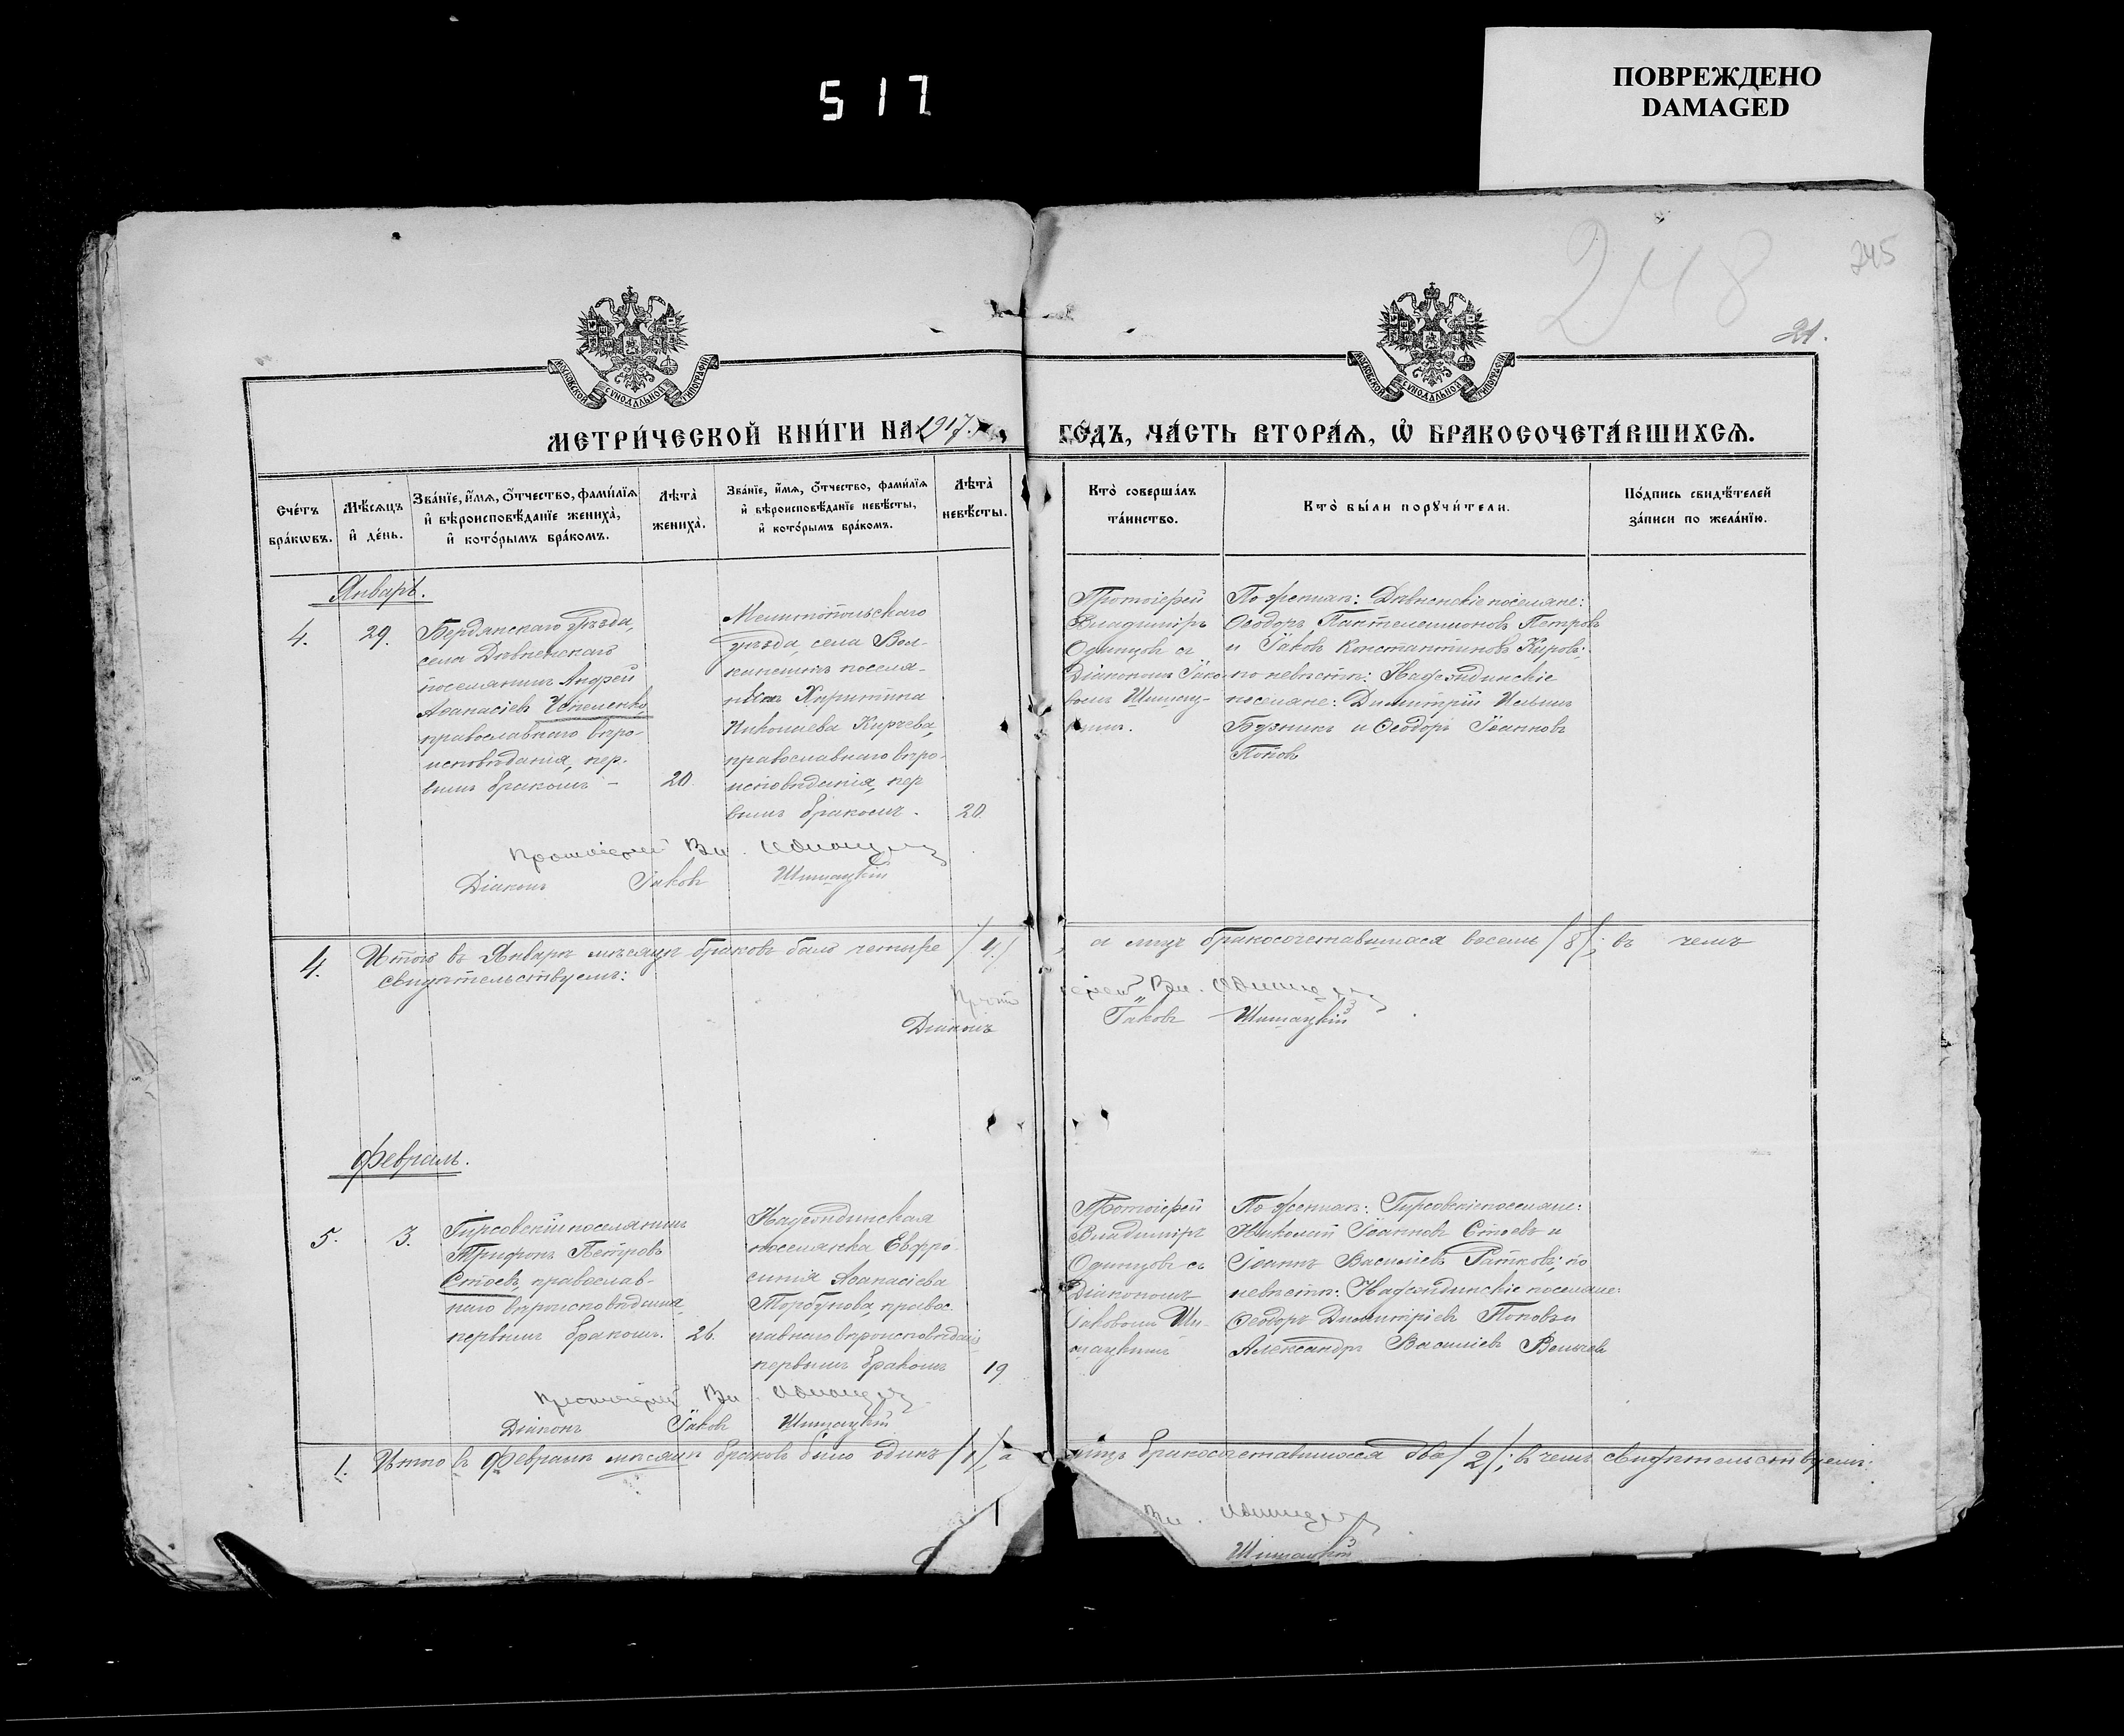 517
ПОВРЕЖДЕНО
DAMAGED
248
245
21.
МЕТРИ́ЧЕСКОЙ КНИ́ГИ НА 1917
ГОДЪ, ЧА́СТЬ ВТОРА́Ѧ, Ѽ БРАКОСОЧЕТА́ВШИХСѦ.
Сче́тъ бра́кѡвъ.
Мѣ́сѧцъ и҆ де́нь.
Зва́нїе, и҆́мѧ, ѻ҆́тчество, фами́лїѧ
и҆ вѣроисповѣ́данїе жениха̀,
и҆ кото́рымъ бра́комъ.
Лѣта̀ жениха̀.
Зва́нїе, и҆́мѧ, ѻ҆́тчество, фами́лїѧ
и҆ вѣроисповѣ́данїе невѣ́сты,
и҆ кото́рымъ бра́комъ.
Лѣта̀ невѣ́сты.
Кто̀ соверша́лъ
та́инство.
Кто̀ бы́ли порꙋчи́тели.
По́дпись свидѣ́телей
за́писи по жела́нїю.
Январь.
4.
29.
Бердянскаго уѣзда,
села
поселянинъ Андрей
Аѳанасіевъ
православнаго вѣро-
исповѣданія, пер-
вымъ бракомъ –
20.
Мелитопольскаго
уѣзда, села Вол-
канештъ поселя-
Николаева
православнаго вѣро-
исповѣданія, пер
вымъ бракомъ.
20.
Протоіерей
Владиміръ
Одинцовъ съ
Діакономъ Іако-
вомъ Шишац-
кимъ.
По женихѣ: поселяне:
Ѳеодоръ Пантелеимоновъ Петровъ
и Іаковъ Константиновъ Кировъ;
по невѣстѣ: Надеждинскіе
поселяне: Димитрій Ильинъ
и Ѳеодоръ Іоанновъ
Поповъ
Протоіерей Вл. Одинцовъ
Діаконъ Іаковъ Шишацкій
4. Итого въ Январѣ мѣсяцѣ браковъ было четыре /4/, а лицъ бракосочетавшихся восемь /8/; въ чемъ
свидѣтельствуемъ:
Прото іерей Вл. Одинцовъ
Діаконъ Іаковъ Шишацкій
Февраль.
5.
3.
Гирсовскій поселянинъ
Трифонъ Петровъ
Стоевъ, православ-
наго вѣроисповѣданія
первымъ бракомъ.
26.
Надеждинская
поселянка Евфро-
синія Аѳанасіева
Торбунова, правос-
лавнаго вѣроисповѣданія
первымъ бракомъ
19
Протоіерей
Владиміръ
Одинцовъ съ
Діакономъ
Іаковомъ Ши-
шацкимъ
По женихѣ: Гирсовскіе поселяне:
Николай Іоанновъ Стоевъ и
Іоаннъ Василіевъ Ратковъ; по
невѣстѣ: Надеждинскіе поселяне:
Ѳеодоръ Димитріевъ Поповъ и
Александръ Василіевъ
Протоіерей Вл. Одинцовъ
Діаконъ Іаковъ Шишацкій
1. Итого въ Февралѣ мѣсяцѣ браковъ было одинъ /1/, а лицъ бракосочетавшихся два /2/; въ чемъ свидѣтельствуемъ:
Вл. Одинцовъ
Шишацкій